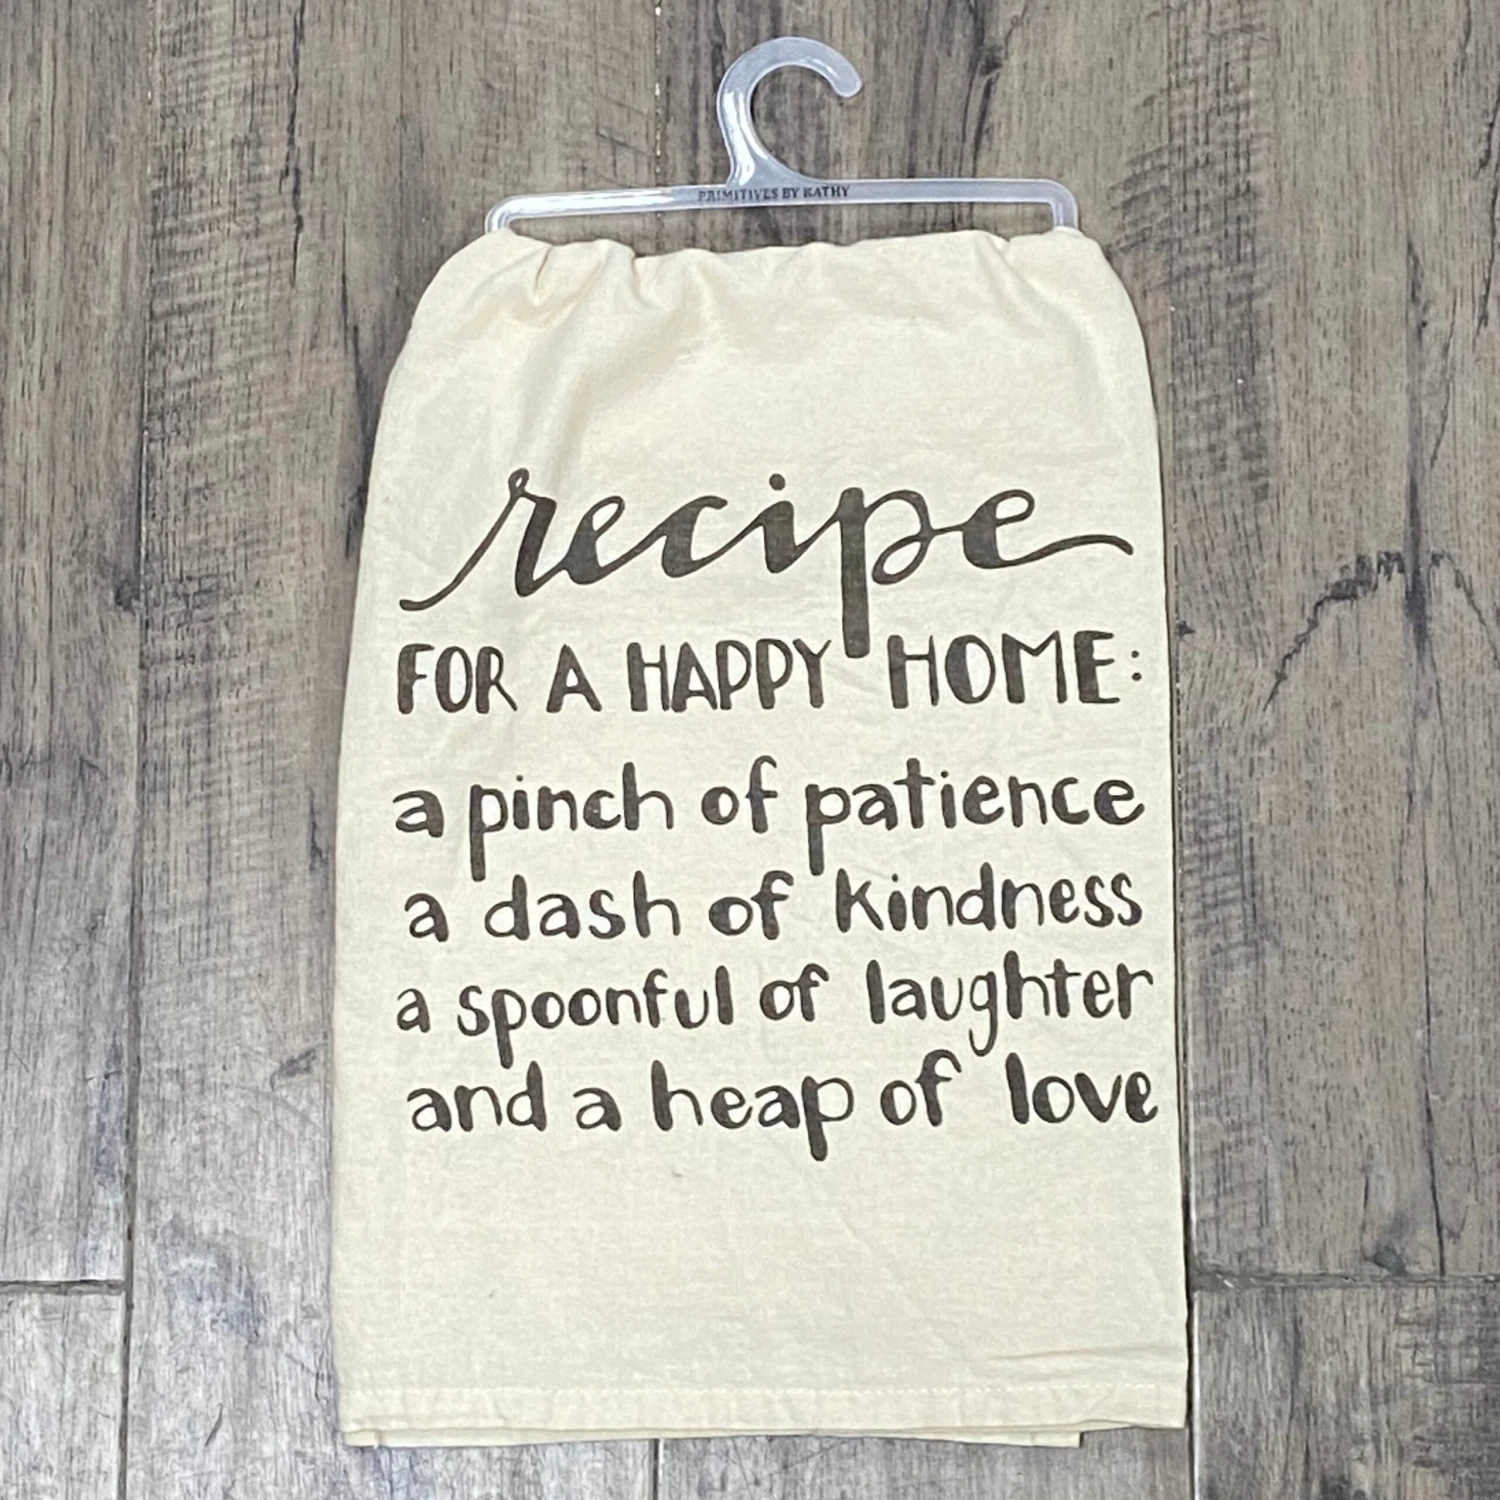 PRIMITIVES BY KATHY
recipe
FOR A HAPPY HOME:
a pinch of patience
a dash of kindness
a spoonful of laughter
and a heap of love